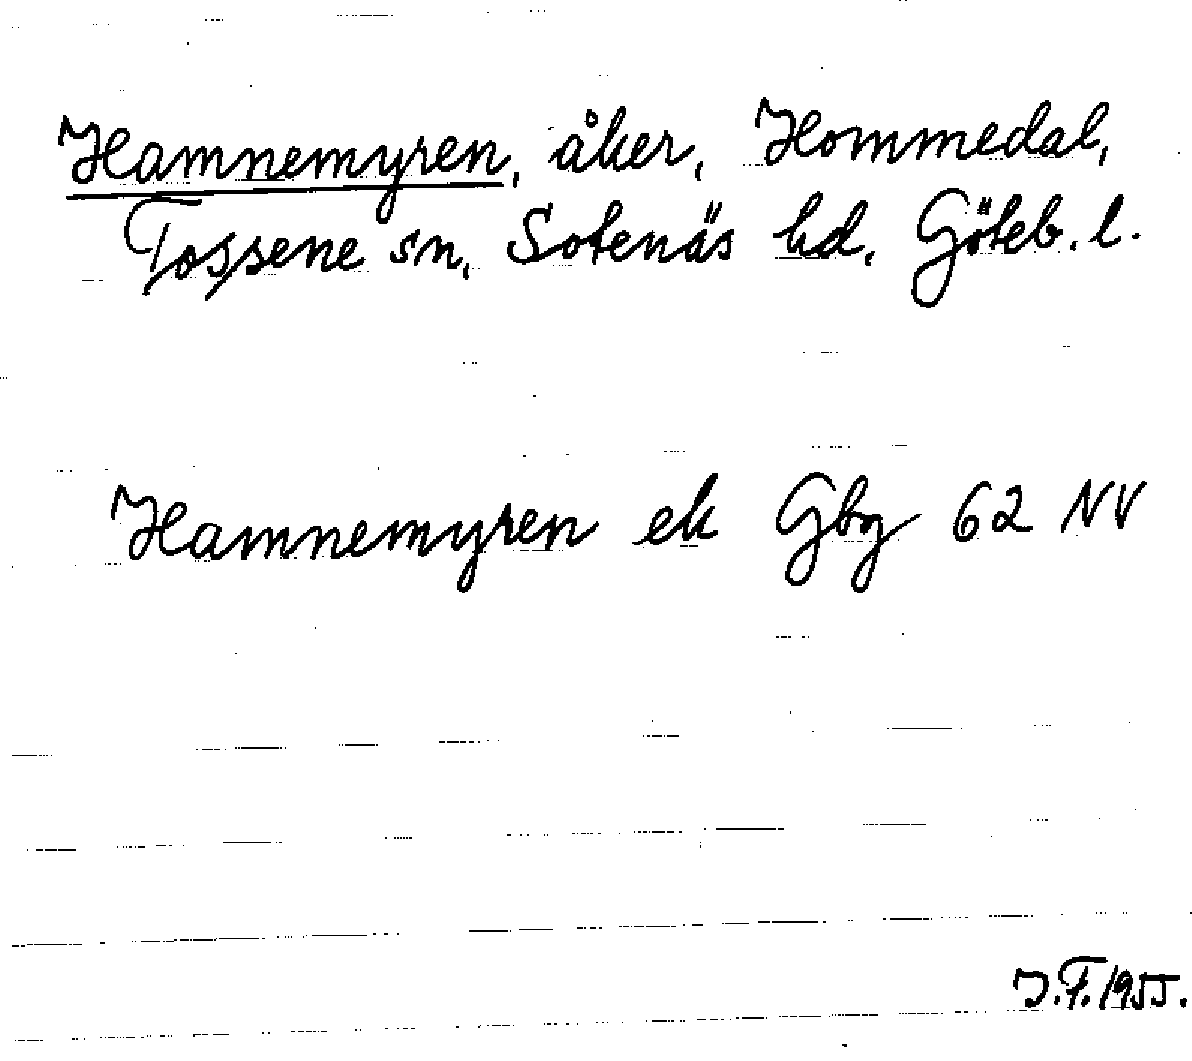 Hamnemyren, åker, Hommedal,
Tossene sn, Sotenäs hd, Göteb. l.
Hamnemyren ek Gbg 62 NV
J.F. 1955.